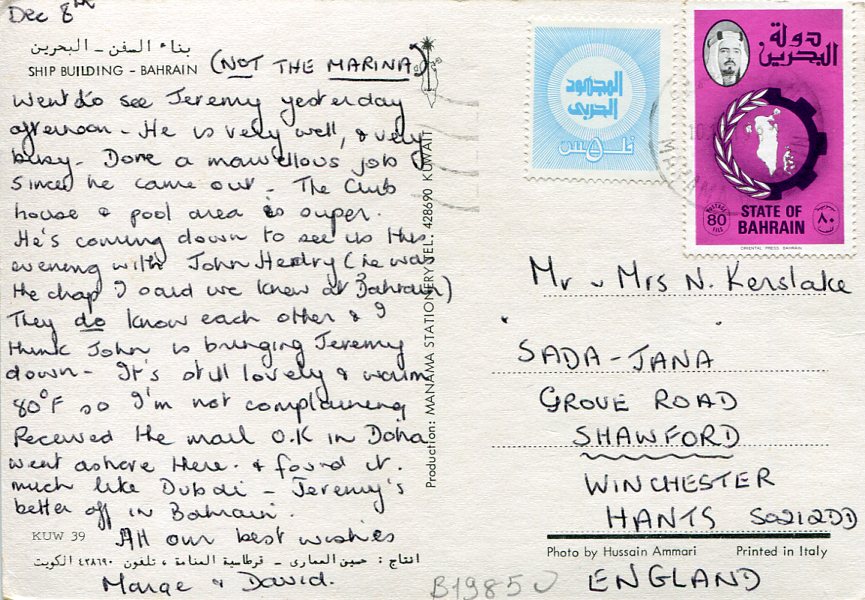 Dec 8th
بناء السفن - البحرين
SHIP BUILDING - BAHRAIN (NOT THE MARINA)
Went to see Jeremy yesterday
afternoon - He is very well, & very
busy. Done a marvellous job
since he came out - The Club
house & pool area is super.
He's coming down to see us this
evening with John Hendry (he was
the chap I said we knew at Bahrain)
They do know each other & I
think John is bringing Jeremy
down - It's still lovely & warm
80°F so I'm not complaining
Received the mail O.K in Doha
went ashore there. & found it
much like Dubai - Jeremy's
better off in Bahrain.
All our best wishes
Marge & David.
KUW 39
انتاج : حسين العماري - قرطاسية المنامة ، تلفون ٤٢٨٦٩٠ الكويت
Production: MANAMA STATIONERY TEL. 428690 KUWAIT
المجهود
الحربي
٥ فلس
دولة
البحرين
POSTAGE
80
FILS
٨٠
STATE OF
BAHRAIN
ORIENTAL PRESS BAHRAIN
Mr & Mrs N. Kerslake
SADA-JANA
GROVE ROAD
SHAWFORD
WINCHESTER
HANTS SO212DD
Photo by Hussain Ammari Printed in Italy
ENGLAND
B1985U